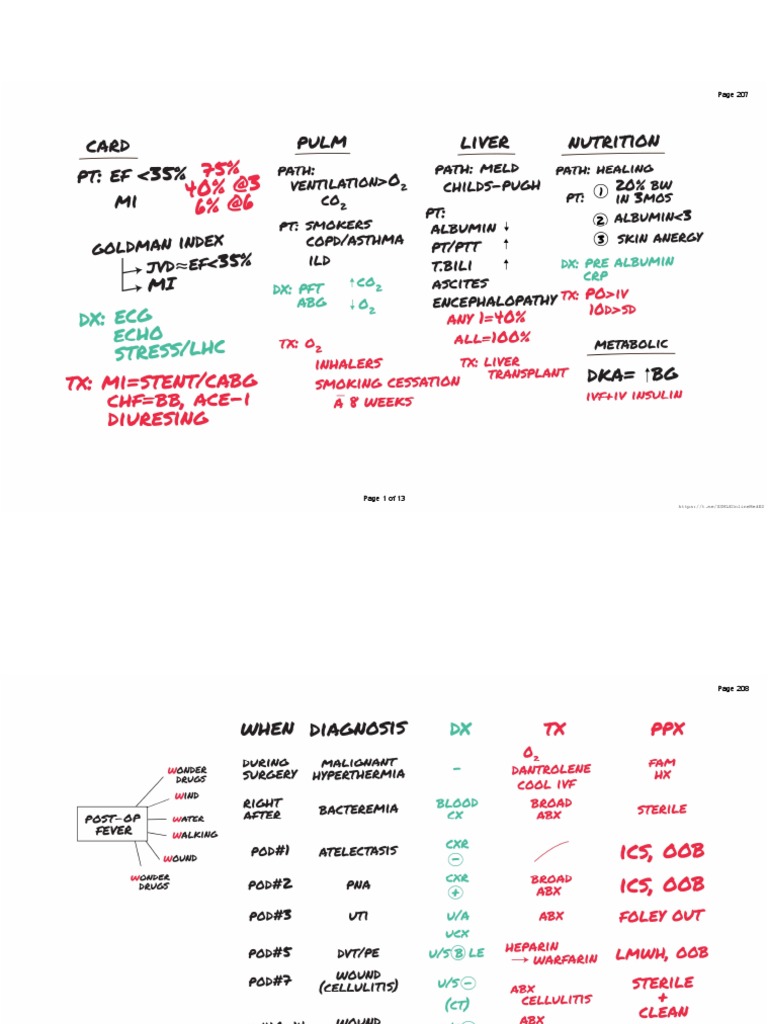 Page 207
CARD
PT: EF <35%
75%
40% @3
6% @6
MI
GOLDMAN INDEX
JVD≈EF<35%
MI
DX: ECG
ECHO
STRESS/LHC
TX: MI=STENT/CABG
CHF=BB, ACE-I
DIURESING
PULM
PATH:
VENTILATION>O2
CO2
PT: SMOKERS
COPD/ASTHMA
ILD
DX: PFT ↑CO2
ABG ↓O2
TX: O2
INHALERS
SMOKING CESSATION
Ā 8 WEEKS
LIVER
PATH: MELD
CHILDS-PUGH
PT:
ALBUMIN ↓
PT/PTT ↑
T.BILI ↑
ASCITES
ENCEPHALOPATHY
ANY 1=40%
ALL=100%
TX: LIVER
TRANSPLANT
NUTRITION
PATH: HEALING
PT: ① 20% BW
IN 3MOS
② ALBUMIN<3
③ SKIN ANERGY
DX: PRE ALBUMIN
CRP
TX: PO>IV
10D>5D
METABOLIC
DKA= ↑BG
IVF+IV INSULIN
Page 1 of 13
Page 208
POST-OP
FEVER
WONDER
DRUGS
WIND
WATER
WALKING
WOUND
WONDER
DRUGS
WHEN DIAGNOSIS DX TX PPX
DURING
SURGERY
MALIGNANT
HYPERTHERMIA
-
O2
DANTROLENE
COOL IVF
FAM
HX
RIGHT
AFTER
BACTEREMIA
BLOOD
CX
BROAD
ABX
STERILE
POD#1
ATELECTASIS
CXR
⊖
ICS, OOB
POD#2
PNA
CXR
⊕
BROAD
ABX
ICS, OOB
POD#3
UTI
U/A
UCX
ABX
FOLEY OUT
POD#5
DVT/PE
U/S Ⓑ LE
HEPARIN
→ WARFARIN
LMWH, OOB
POD#7
WOUND
(CELLULITIS)
U/S ⊖
(CT)
ABX
CELLULITIS
STERILE
+
CLEAN
WOUND
ABX